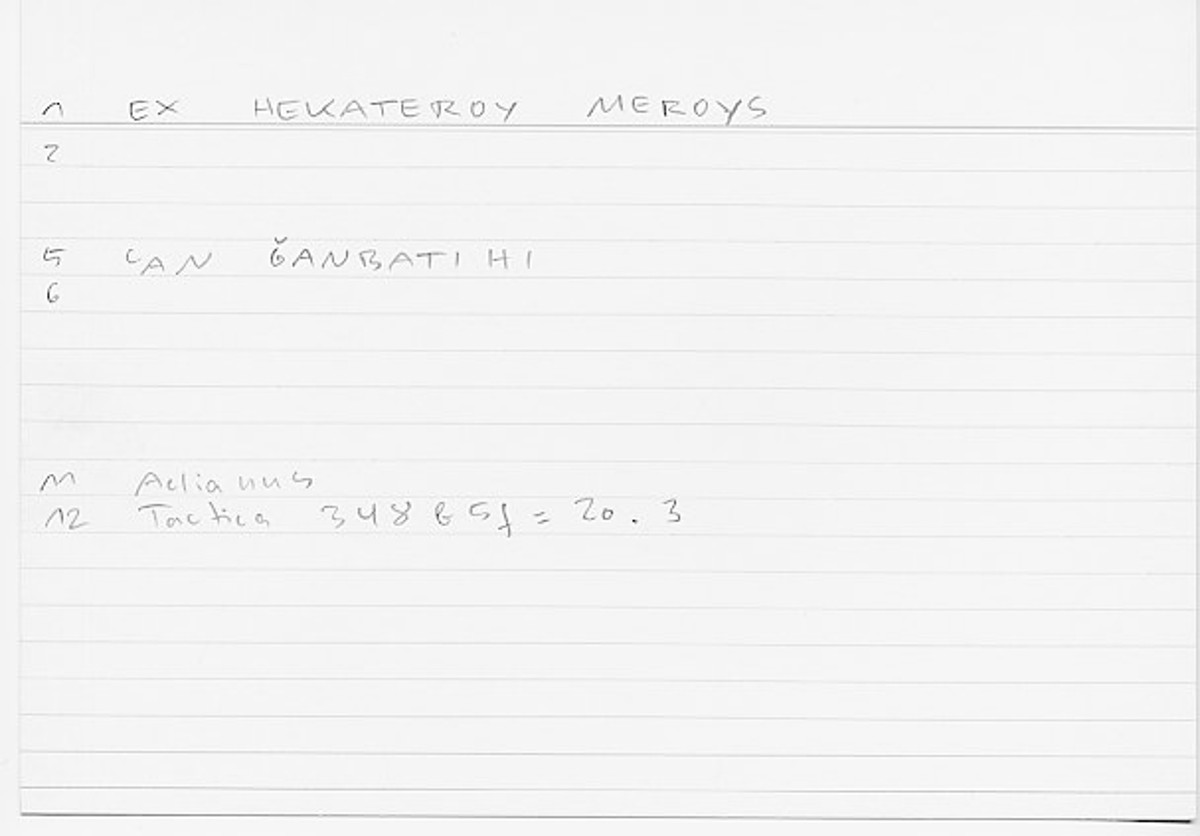 1 EX HEKATEROY MEROYS
2
5 ʿAN ǦANBATIHI
6
11 Aelianus
12 Tactica 348 b 5f = 20.3